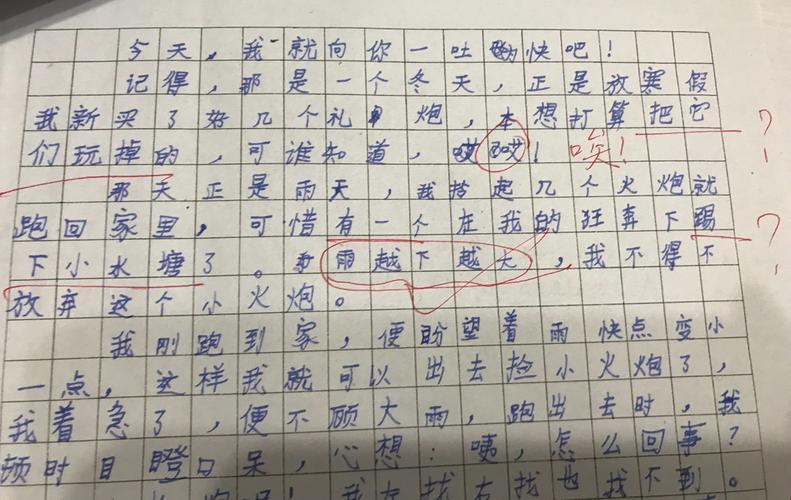 今天，我就向你一吐为快吧！
记得，那是一个冬天，正是放寒假
我新买了好几个礼炮，本想打算把它
们玩掉的，可谁知道，哎哎！唉！
那天正是雨天，我拾起几个火炮就
跑回家里，可惜有一个在我的狂奔下踢
下小水塘了。雨越下越大，我不得不
放弃这个小火炮。
我刚跑到家，便盼望着雨快点变小
一点，这样我就可以出去捡小火炮了，
我着急了，便不顾大雨，跑出去时，我
顿时目瞪口呆，心想：咦，怎么回事？
我左找右找也找不到。